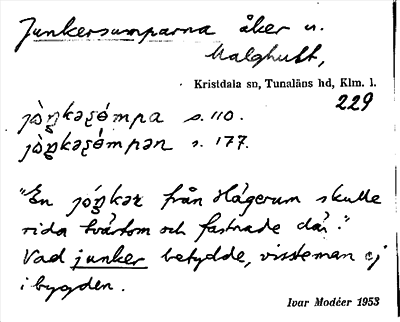 Junkersumparna åker u.
Malghult,
Kristdala sn, Tunaläns hd, Klm. l.
229
s. 110.
s. 177.
"En från Hágerum skulle
rida tvärtom och fastnade där."
Vad junker betydde, visste man ej
i bygden.
Ivar Modéer 1953